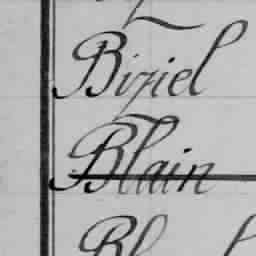 Biziel
Blain